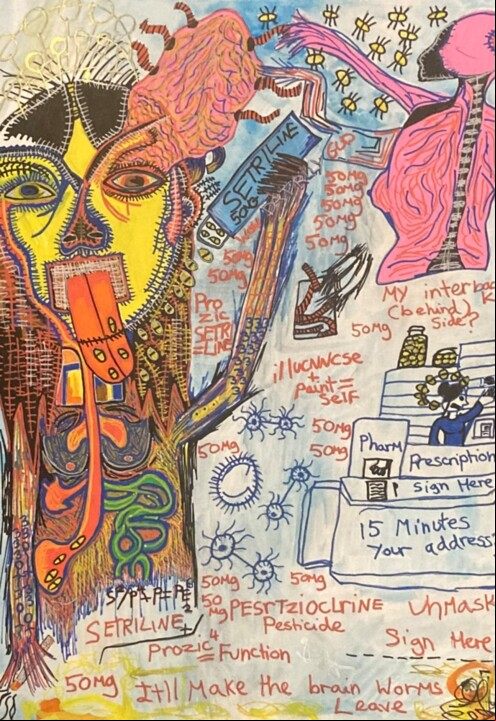 SETRILINE
50MG
SUP
50MG
50MG
50MG
50MG
50MG
50MG
50MG
Pro
zic
SETRI
=LINE
My interback
(behind)
side?
50MG
illucNNCse
+
Paint =
Self
50MG
50MG
50Mg
Pharm
Prescription
Sign Here
15 Minutes
Your address
50MG
50MG
50
Mg
PESRTZIOCLRINE
Pesticide
UnMask
SETRILINE +
Prozic
= Function
Sign Here
50Mg
It'll Make the brain Worms
Leave